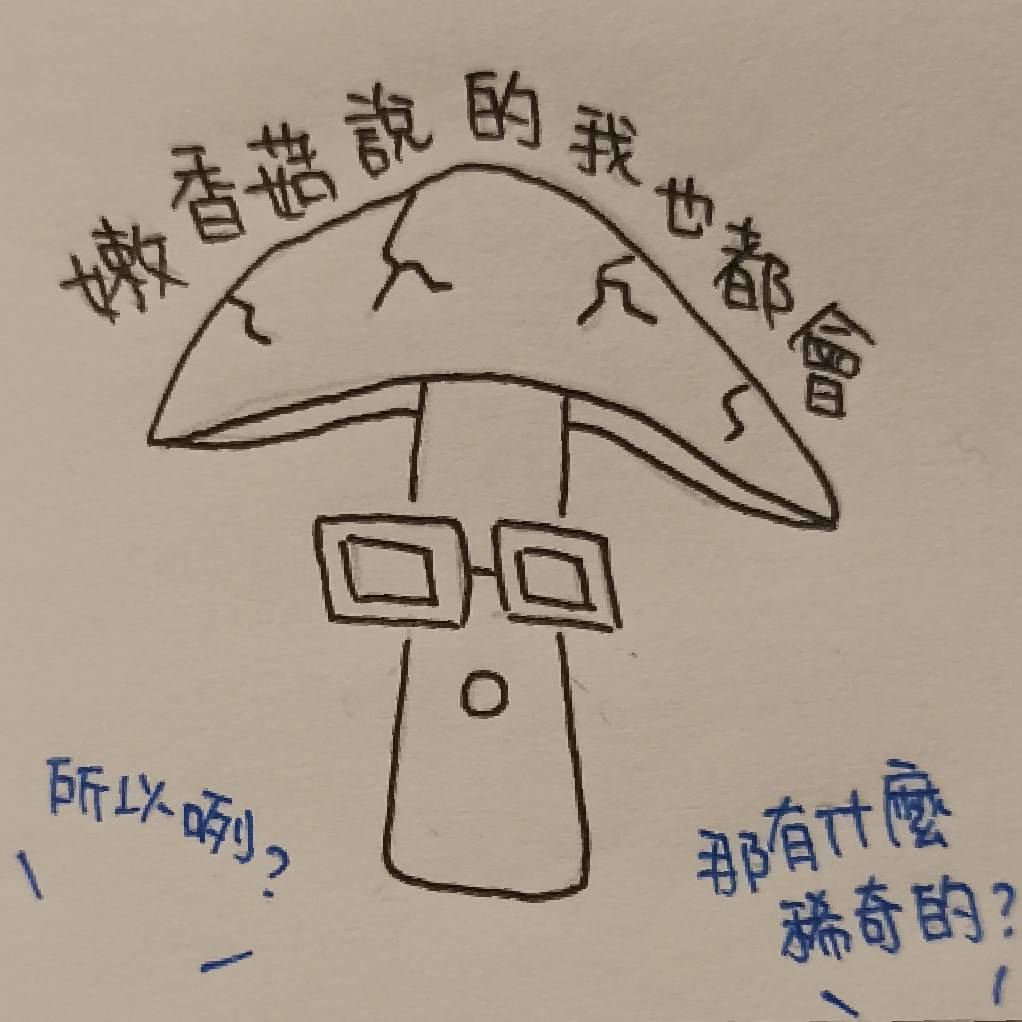 嫩香菇說的我也都會
所以咧?
那有什麼
稀奇的?